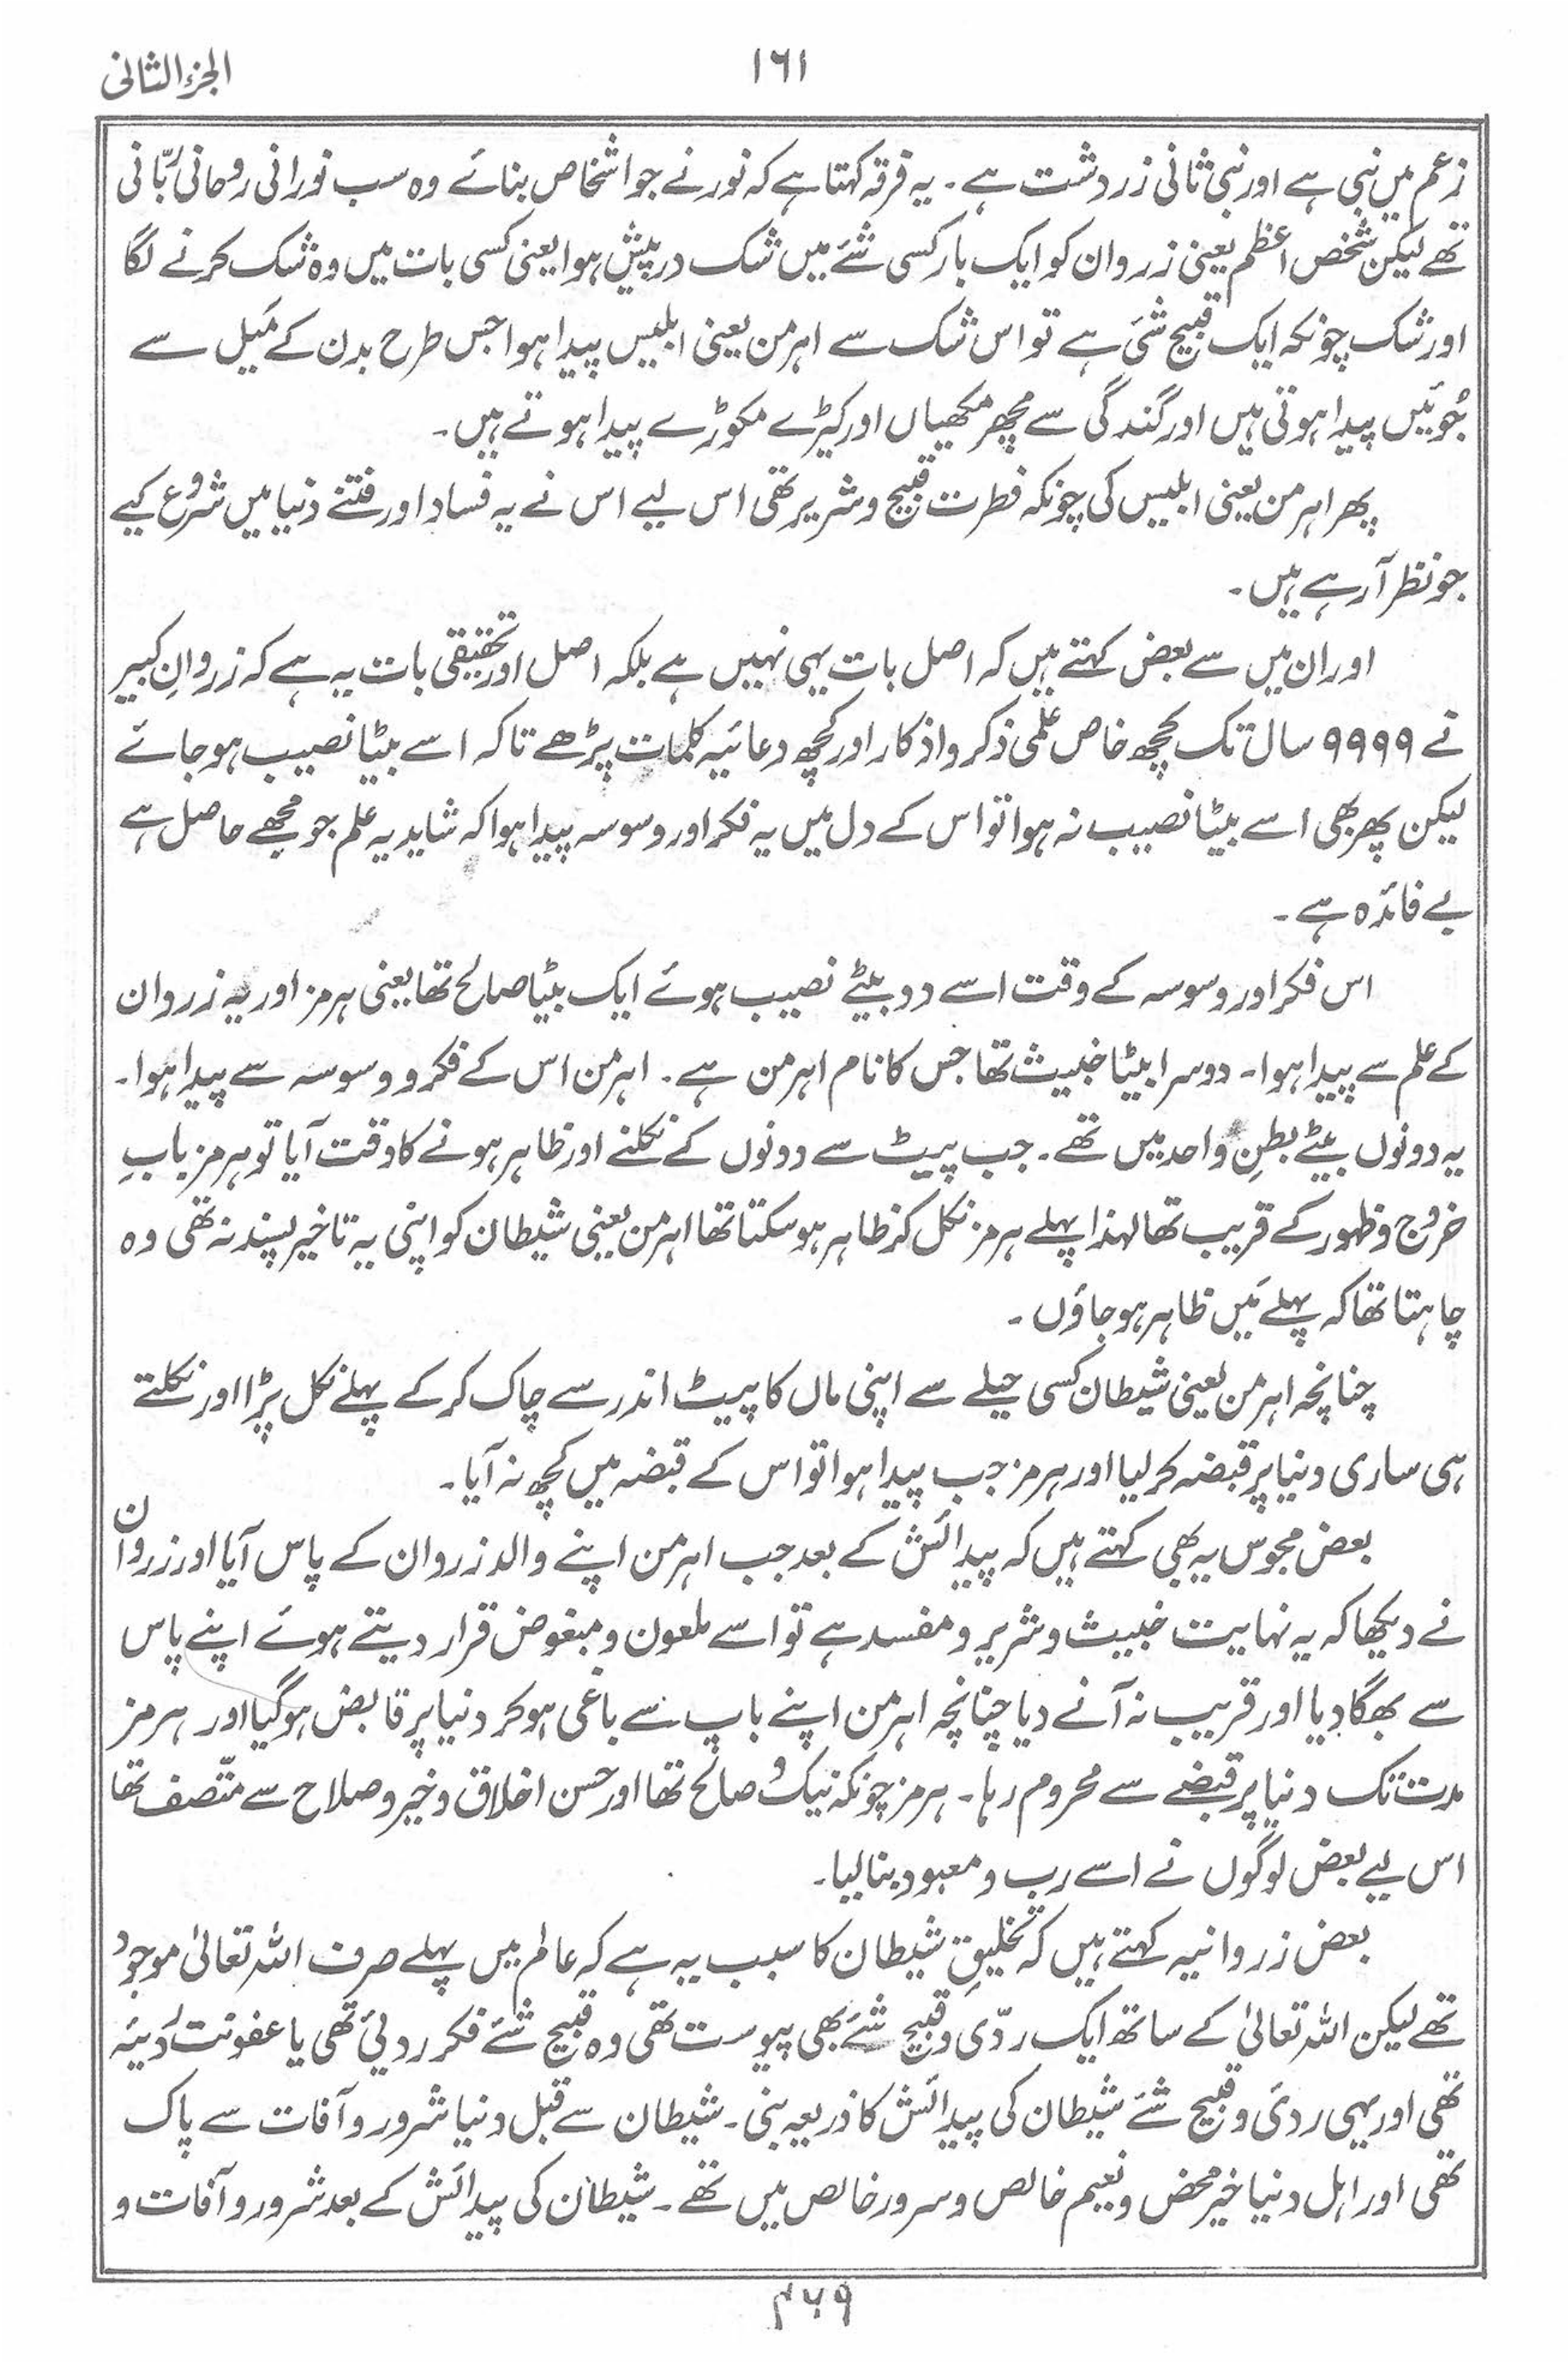 الجزء الثانی
۱۶۱
زعم میں نبی ہے اور نبی ثانی زردشت ہے ۔ یہ فرقہ کہتا ہے کہ نور نے جو اشخاص بنائے وہ سب نورانی روحانی رُبّانی
تھے لیکن شخص اعظم یعنی زروان کو ایک بار کسی شئے میں شک درپیش ہوا یعنی کسی بات میں وہ شک کرنے لگا
اور شک چونکہ ایک قبیح شئ ہے تو اس شک سے اہرمن یعنی ابلیس پیدا ہوا جس طرح بدن کے مَیل سے
جُوئیں پیدا ہوتی ہیں اور گندگی سے مچھر مکھیاں اور کیڑے مکوڑے پیدا ہوتے ہیں۔
پھر اہرمن یعنی ابلیس کی چونکہ فطرت قبیح و شریر تھی اس لیے اس نے یہ فساد اور فتنے دُنیا میں شروع کیے
جو نظر آرہے ہیں ۔
اور ان میں سے بعض کہتے ہیں کہ اصل بات یہی نہیں ہے بلکہ اصل اور تحقیقی بات یہ ہے کہ زروانِ کبیر
نے ۹۹۹۹ سال تک کچھ خاص علمی ذکر و اذکار اور کچھ دعائیہ کلمات پڑھے تاکہ اسے بیٹا نصیب ہوجائے
لیکن پھر بھی اسے بیٹا نصیب نہ ہوا تو اس کے دل میں یہ فکر اور وسوسہ پیدا ہوا کہ شاید یہ علم جو مجھے حاصل ہے
بے فائدہ ہے ۔
اس فکر اور وسوسہ کے وقت اسے دو بیٹے نصیب ہوئے ایک بیٹا صالح تھا یعنی ہرمز اور یہ زروان
کے علم سے پیدا ہوا ۔ دوسرا بیٹا خبیث تھا جس کا نام اہرمن ہے ۔ اہرمن اس کے فکر و وسوسہ سے پیدا ہوا ۔
یہ دونوں بیٹے بطنِ واحد میں تھے ۔ جب پیٹ سے دونوں کے نکلنے اور ظاہر ہونے کا وقت آیا تو ہرمز بابِ
خروج و ظہور کے قریب تھا لہذا پہلے ہرمز نکل کر ظاہر ہوسکتا تھا اہرمن یعنی شیطان کو اپنی یہ تاخیر پسند نہ تھی وہ
چاہتا تھا کہ پہلے مَیں ظاہر ہو جاؤں ۔
چنانچہ اہرمن یعنی شیطان کسی حیلے سے اپنی ماں کا پیٹ اندر سے چاک کر کے پہلے نکل پڑا اور نکلتے
ہی ساری دنیا پر قبضہ کر لیا اور ہرمز جب پیدا ہوا تو اس کے قبضہ میں کچھ نہ آیا ۔
بعض مجوس یہ بھی کہتے ہیں کہ پیدائش کے بعد جب اہرمن اپنے والد زروان کے پاس آیا اور زروان
نے دیکھا کہ یہ نہایت خبیث و شریر و مفسد ہے تو اسے ملعون و مبغوض قرار دیتے ہوئے اپنے پاس
سے بھگا دیا اور قریب نہ آنے دیا چنانچہ اہرمن اپنے باپ سے باغی ہو کر دنیا پر قابض ہوگیا اور ہرمز
مدت تک دنیا پر قبضے سے محروم رہا ۔ ہرمز چونکہ نیک و صالح تھا اور حسن اخلاق و خیر و صلاح سے متّصف تھا
اس لیے بعض لوگوں نے اسے رب و معبود بنا لیا۔
بعض زروانیہ کہتے ہیں کہ تخلیقِ شیطان کا سبب یہ ہے کہ عالم میں پہلے صرف اللہ تعالیٰ موجود
تھے لیکن اللہ تعالیٰ کے ساتھ ایک ردّی و قبیح شئے بھی پیوست تھی وہ قبیح شئے فکر ردیئ تھی یا عفونت
تھی اور یہی ردئ و قبیح شئے شیطان کی پیدائش کا ذریعہ بنی ۔ شیطان سے قبل دنیا شرور و آفات سے پاک
تھی اور اہل دنیا خیر محض و نعیم خالص و سرور خالص میں تھے ۔ شیطان کی پیدائش کے بعد شرور و آفات و
۴۶۹